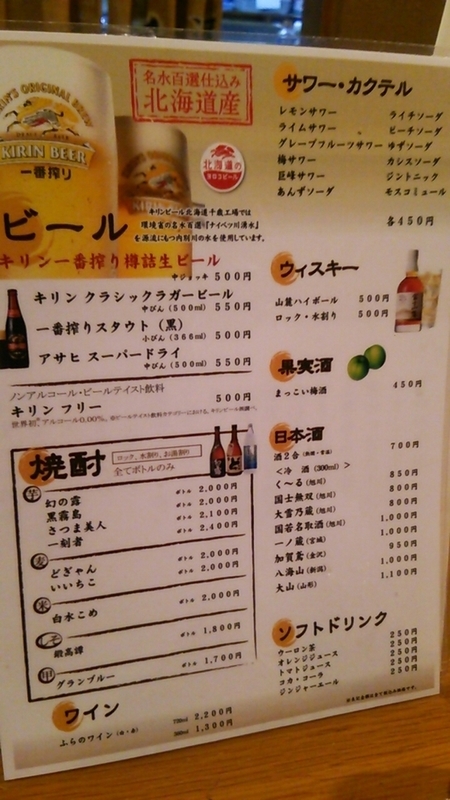 KIRIN BEER
一番搾り
名水百選仕込み
北海道産
北海道の
ビール
キリンビール北海道千歳工場では
環境省の名水百選「ナイベツ川湧水」
を源流にもつ内別川の水を使用しています。
キリン一番搾り樽詰生ビール
中ジョッキ 500円
キリン クラシックラガービール
中びん (500ml) 550円
一番搾りスタウト (黒)
小びん (366ml) 500円
アサヒ スーパードライ
中びん (500ml) 550円
ノンアルコール・ビールテイスト飲料
キリン フリー 500円
焼酎
ロック、水割り、お湯割り
全てボトルのみ
芋
幻の露 ボトル 2,000円
黒霧島 ボトル 2,000円
さつま美人 ボトル 2,100円
一刻者 ボトル 2,400円
麦
どぎゃん ボトル 2,000円
いいちこ ボトル 2,000円
米
白水こめ ボトル 2,000円
しそ
鍛高譚 ボトル 1,800円
甲
グランブルー ボトル 1,700円
ワイン
ふらのワイン (白・赤) 720ml 2,200円
360ml 1,300円
サワー・カクテル
レモンサワー ライチソーダ
ライムサワー ピーチソーダ
グレープフルーツサワー ゆずソーダ
梅サワー カシスソーダ
巨峰サワー ジントニック
あんずソーダ モスコミュール
各450円
ウィスキー
山麓ハイボール 500円
ロック・水割り 500円
果実酒
まっこい梅酒 450円
日本酒
酒2合 (熱燗・常温) 700円
<冷 酒 (300ml) >
く〜る (旭川) 850円
国士無双 (旭川) 800円
大雪乃蔵 (旭川) 800円
国若名取酒 (旭川) 1,000円
一ノ蔵 (宮城) 1,000円
加賀鳶 (金沢) 950円
八海山 (新潟) 1,000円
大山 (山形) 1,100円
ソフトドリンク
ウーロン茶 250円
オレンジジュース 250円
トマトジュース 250円
コカ・コーラ 250円
ジンジャーエール 250円